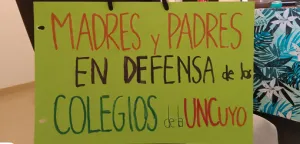 MADRES y PADRES
EN DEFENSA de los
COLEGIOS de la UNCUYO